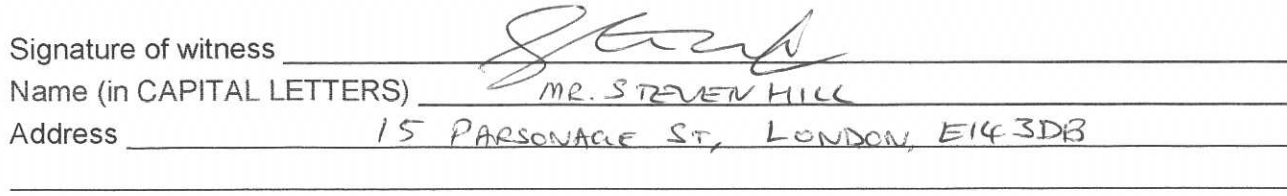 Signature of witness
Name (in CAPITAL LETTERS) MR. STEVEN HILL
Address 15 PARSONAGE ST, LONDON, E14 3DB